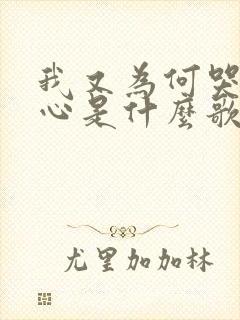 我又為何哭
心是什麼歌
尤里加加林